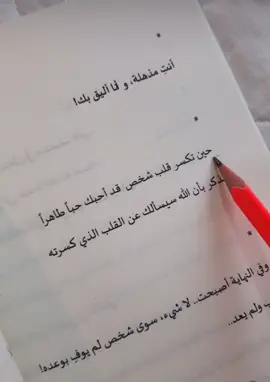 أنتِ مذهلة، و أنا أليق بك!
حين تكسر قلب شخص قد أحبك حباً طاهراً
تذكر بأن الله سيسألك عن القلب الذي كسرته
وفي النهاية أصبحت.. لا شيء، سوى شخص لم يوفِ بوعده!
ولم يعد..